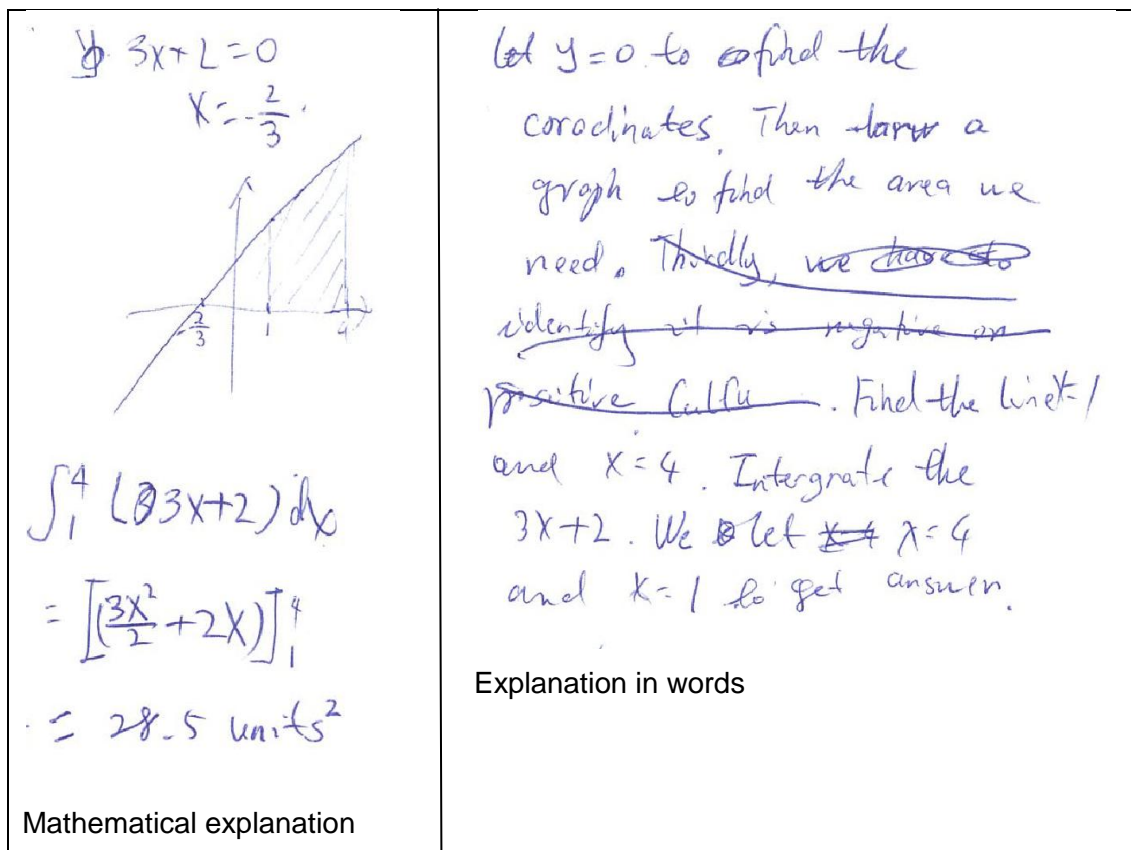 3x+2=0
x=-2/3
-2/3 1 4
∫₁⁴ (3x+2)dx
= [(3x²/2 + 2x)]₁⁴
= 28.5 units²
Mathematical explanation
Let y=0 to find the
corodinates. Then a
graph to find the area we
need. Thirdly, we have to
identify it is negative or
positive Calcu. Find the line x=1
and x=4. Intergrate the
3x+2. We let x=4
and x=1 to get answer.
Explanation in words